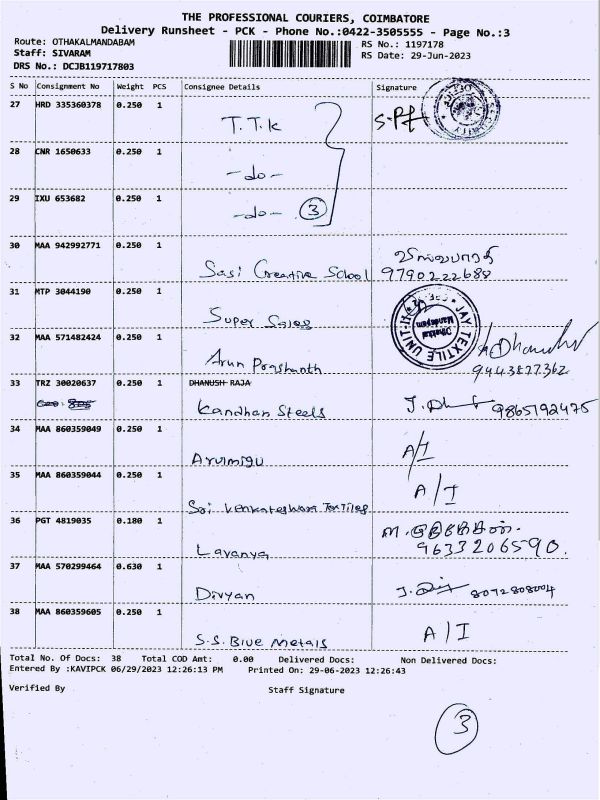 THE PROFESSIONAL COURIERS, COIMBATORE
Delivery Runsheet - PCK - Phone No.:0422-3505555 - Page No.:3
Route: OTHAKALMANDABAM
RS No.: 1197178
Staff: SIVARAM
RS Date: 29-Jun-2023
DRS No.: DCJB119717803
S No Consignment No Weight PCS Consignee Details Signature
27 HRD 335360378 0.250 1 T.T.K
28 CNR 1650633 0.250 1 -do-
29 IXU 653682 0.250 1 -do- 3
30 MAA 942992771 0.250 1 Sasi Creative School 9790222688
31 MTP 3044190 0.250 1 Super Sales
JAY TEXTILE UNIT-II
32 MAA 571482424 0.250 1 Arun Prashanth 9443827362
33 TRZ 30020637 0.250 1 DHANUSH RAJA
Kandhan Steels 9865192475
34 MAA 860359049 0.250 1 Arulmigu A/I
35 MAA 860359044 0.250 1 Sri Venkateshwara Textiles A/I
36 PGT 4819035 0.180 1 Lavanya 9633206590.
37 MAA 570299464 0.630 1 Divyan 8072808004
38 MAA 860359605 0.250 1 S.S. Blue Metals A/I
Total No. Of Docs: 38 Total COD Amt: 0.00 Delivered Docs: Non Delivered Docs:
Entered By :KAVIPCK 06/29/2023 12:26:13 PM Printed On: 29-06-2023 12:26:43
Verified By Staff Signature
3